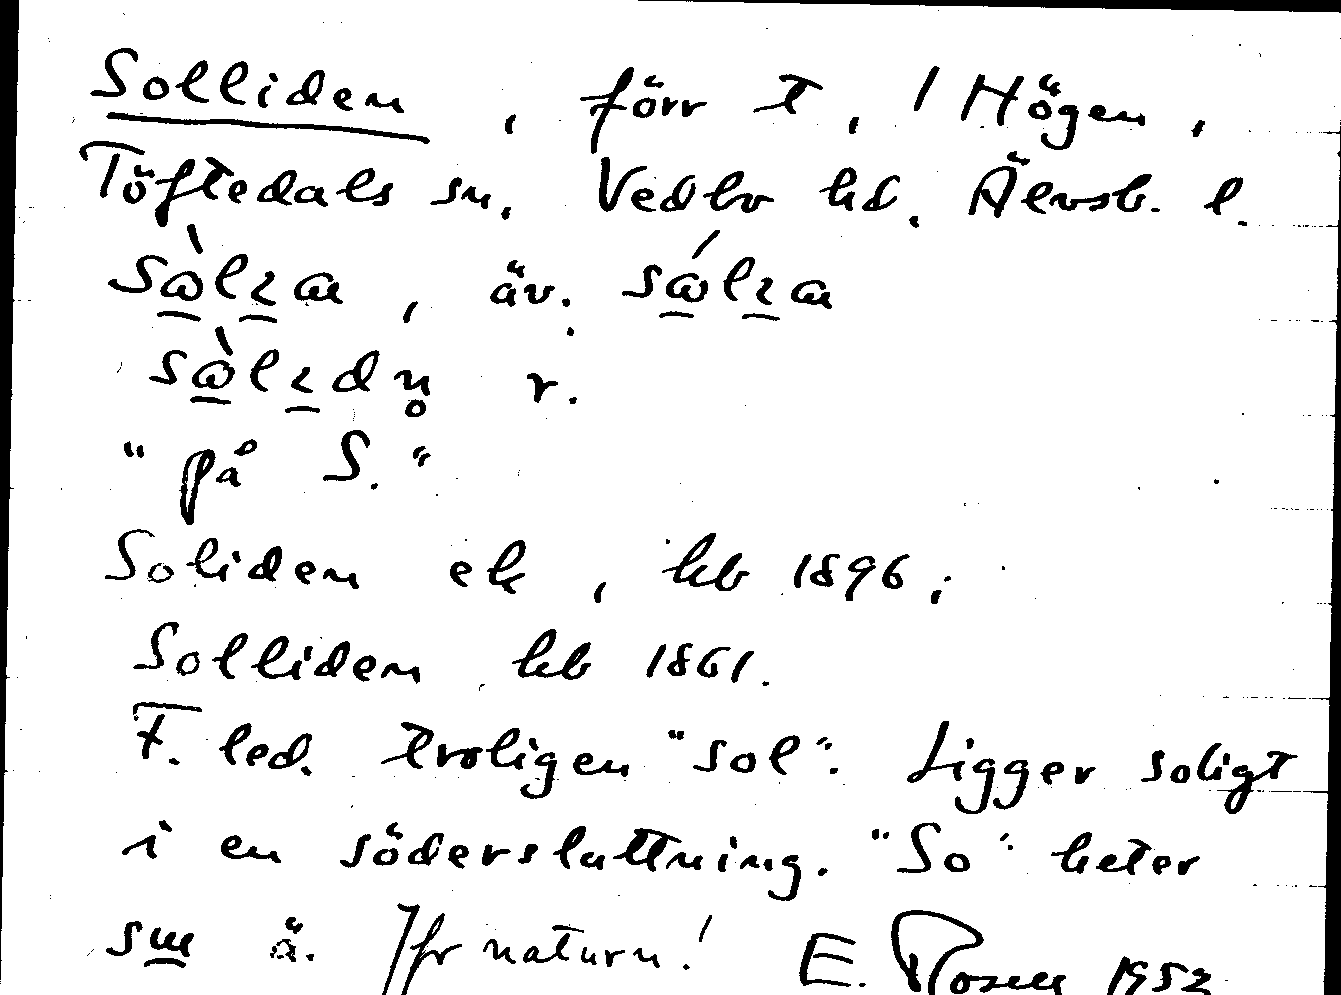 Solliden, förr t, 1 Högen,
Töftedals sn. Vedbo hd. Älvsb. l.
sὼlɩa, äv. sώlɩa
sὼlɩdn̥ r.
"på S."
Soliden ek, kb 1896;
Solliden kb 1861.
F. led. troligen "sol". Ligger soligt
i en södersluttning. "So" heter
ä. Jfr naturn! E. Rosell 1952